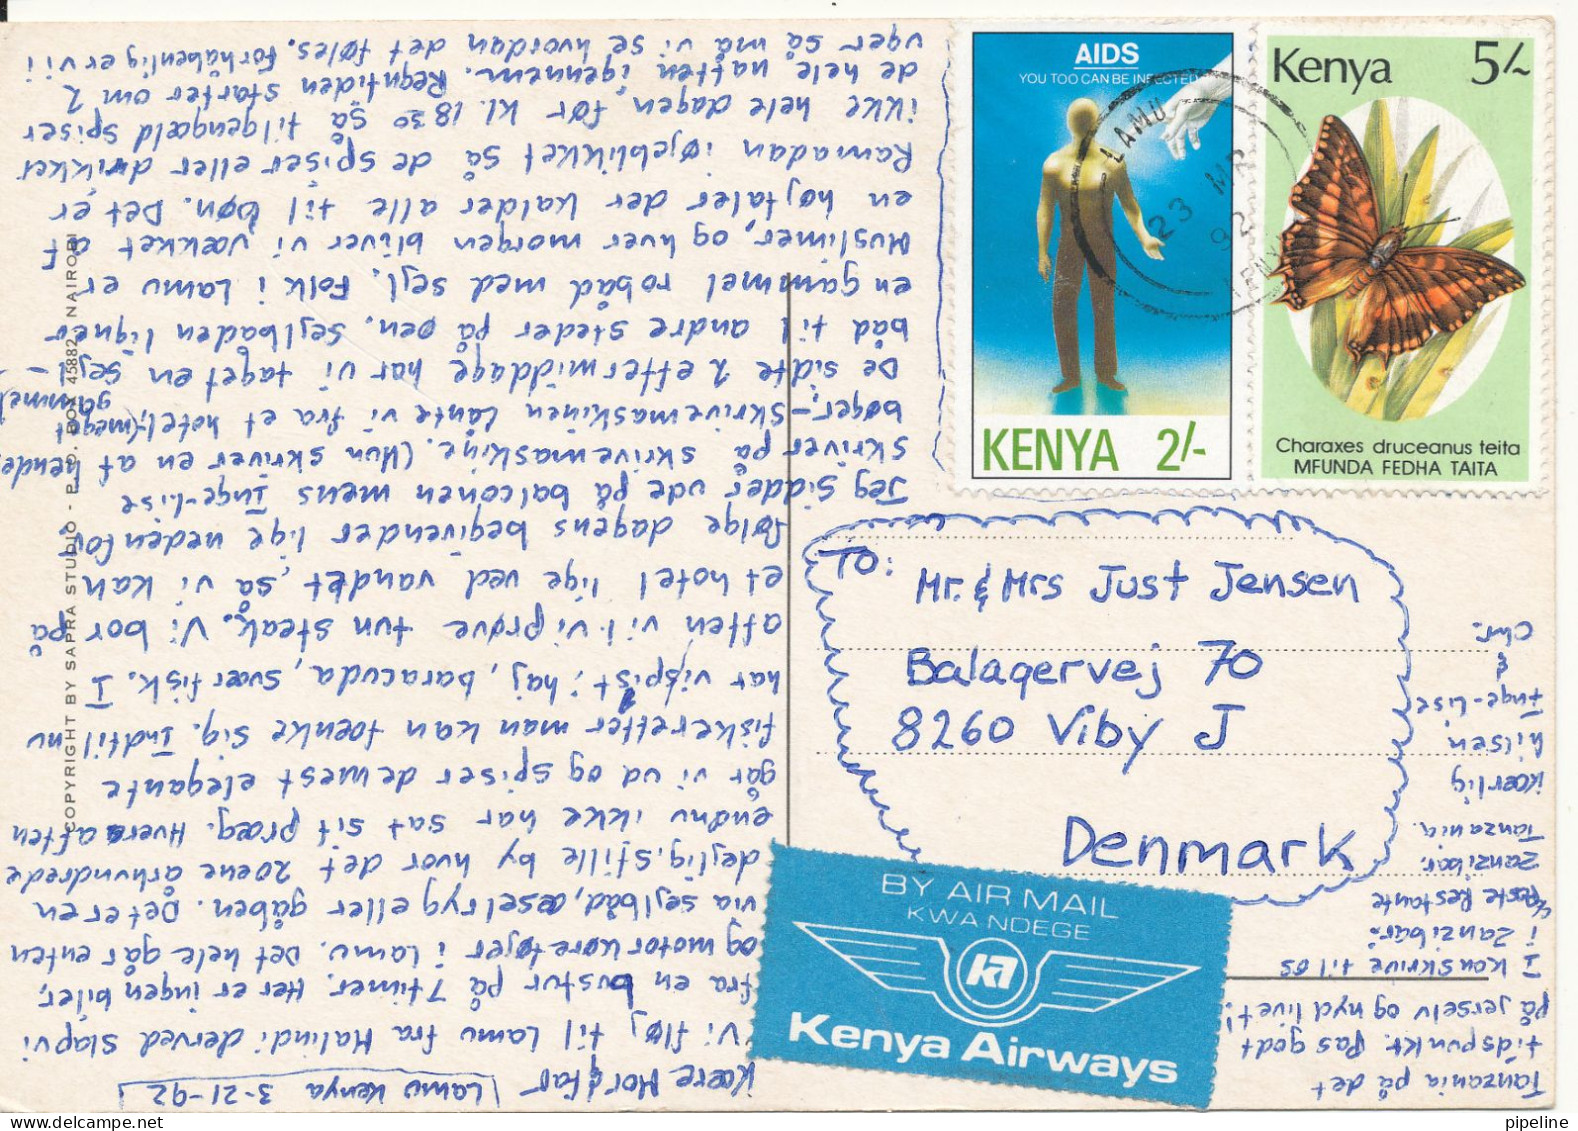 Lamu Kenya 3-21-92
Kære Mor & far
Vi fløj til Lamu fra Malindi derved slap vi
fra en bustur på 7 timer. Her er ingen biler,
og motorkøretøjer i Lamu. Det hele går enten
via sejlbåd, æselryg eller gåben. Det er en
dejlig, stille by hvor det 20ene århundrede
endnu ikke har sat sit præg. Hver aften
går vi ud og spiser de mest elegante
fiskeretter man kan tænke sig. Indtil nu
har vi spist: haj, baracuda, sværfisk. I
aften vil vi prøve tun steak. Vi bor på
et hotel lige ved vandet, så vi kan
følge dagens begivender lige nedenfor
Jeg sidder ude på balconen mens Inge-Lise
skriver på skrivemaskine. (Hun skriver en at hendes
bøger,-skrivemaskinen lånte vi fra et hotel,-(meget
gammel)
De sidte 2 eftermiddage har vi taget en sejl-
båd til andre steder på øen. Sejlbåden ligner
en gammel robåd med sejl. Folk i Lamu er
Muslimer, og hver morgen bliver vi vækket af
en højtaler der kalder alle til bøn. Det er
Ramadan i øjeblikket så de spiser eller drikker
ikke hele dagen, før kl. 18.30 så tilgengæld spiser
de hele natten igennem. Regntiden starter om 2
uger så må vi se hvordan det føles. Forhåbenlig er vi i
Tanzania på det
tidspunkt. Pas godt
på jerselv og nyd livet!
I kan skrive til os
i Zanzibar:
% Poste Restante
Zanzibar,
Tanzania.
Kærlig
hilsen
Inge-Lise
&
Chr.
To:
Mr. & Mrs Just Jensen
Balagervej 70
8260 Viby J
Denmark
BY AIR MAIL
KWA NDEGE
KA
Kenya Airways
AIDS
YOU TOO CAN BE INFECTED
KENYA 2/-
Kenya 5/-
Charaxes druceanus teita
MFUNDA FEDHA TAITA
LAMU
23 MR
92
KENYA
COPYRIGHT BY SAPRA STUDIO - P. O. BOX 45882, NAIROBI
pipeline